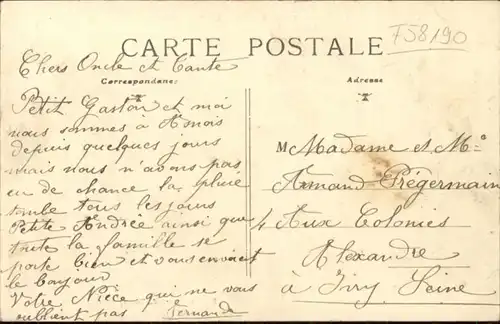 CARTE POSTALE
F58190
Correspondance
Adresse
Chers Oncle et Tante
Petit Gaston et moi
nous sommes à
depuis quelques jours
mais nous n'avons pas
eu de chance la pluie
tombe tous les jours
Petite Andrée ainsi que
toute la famille se
porte bien et vous envoient
le bonjour
Votre Nièce qui ne vous
oublient pas Fernande
M Madame et Mr
Armand Prégermain
4 Aux Colonies
Alexandre
à Ivry Seine